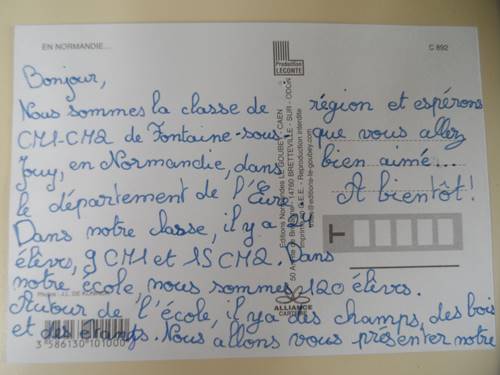 EN NORMANDIE...
C 892
Production
LECONTE
Bonjour,
Nous sommes la classe de
CM1-CM2 de Fontaine-sous-
Jouy, en Normandie, dans
le département de l'Eure.
Dans notre classe, il y a 24
élèves, 9 CM1 et 15 CM2. Dans
notre école, nous sommes 120 élèves.
Autour de l'école, il y a des champs, des bois
et des étangs. Nous allons vous présenter notre
région et espérons
que vous allez
bien aimé...
A bientôt!
Editions Normandes LE GOUBEY - CAEN
14760 BRETTEVILLE - SUR - ODON
Reproduction interdite
T
ALLIANCE
3 586130 101000